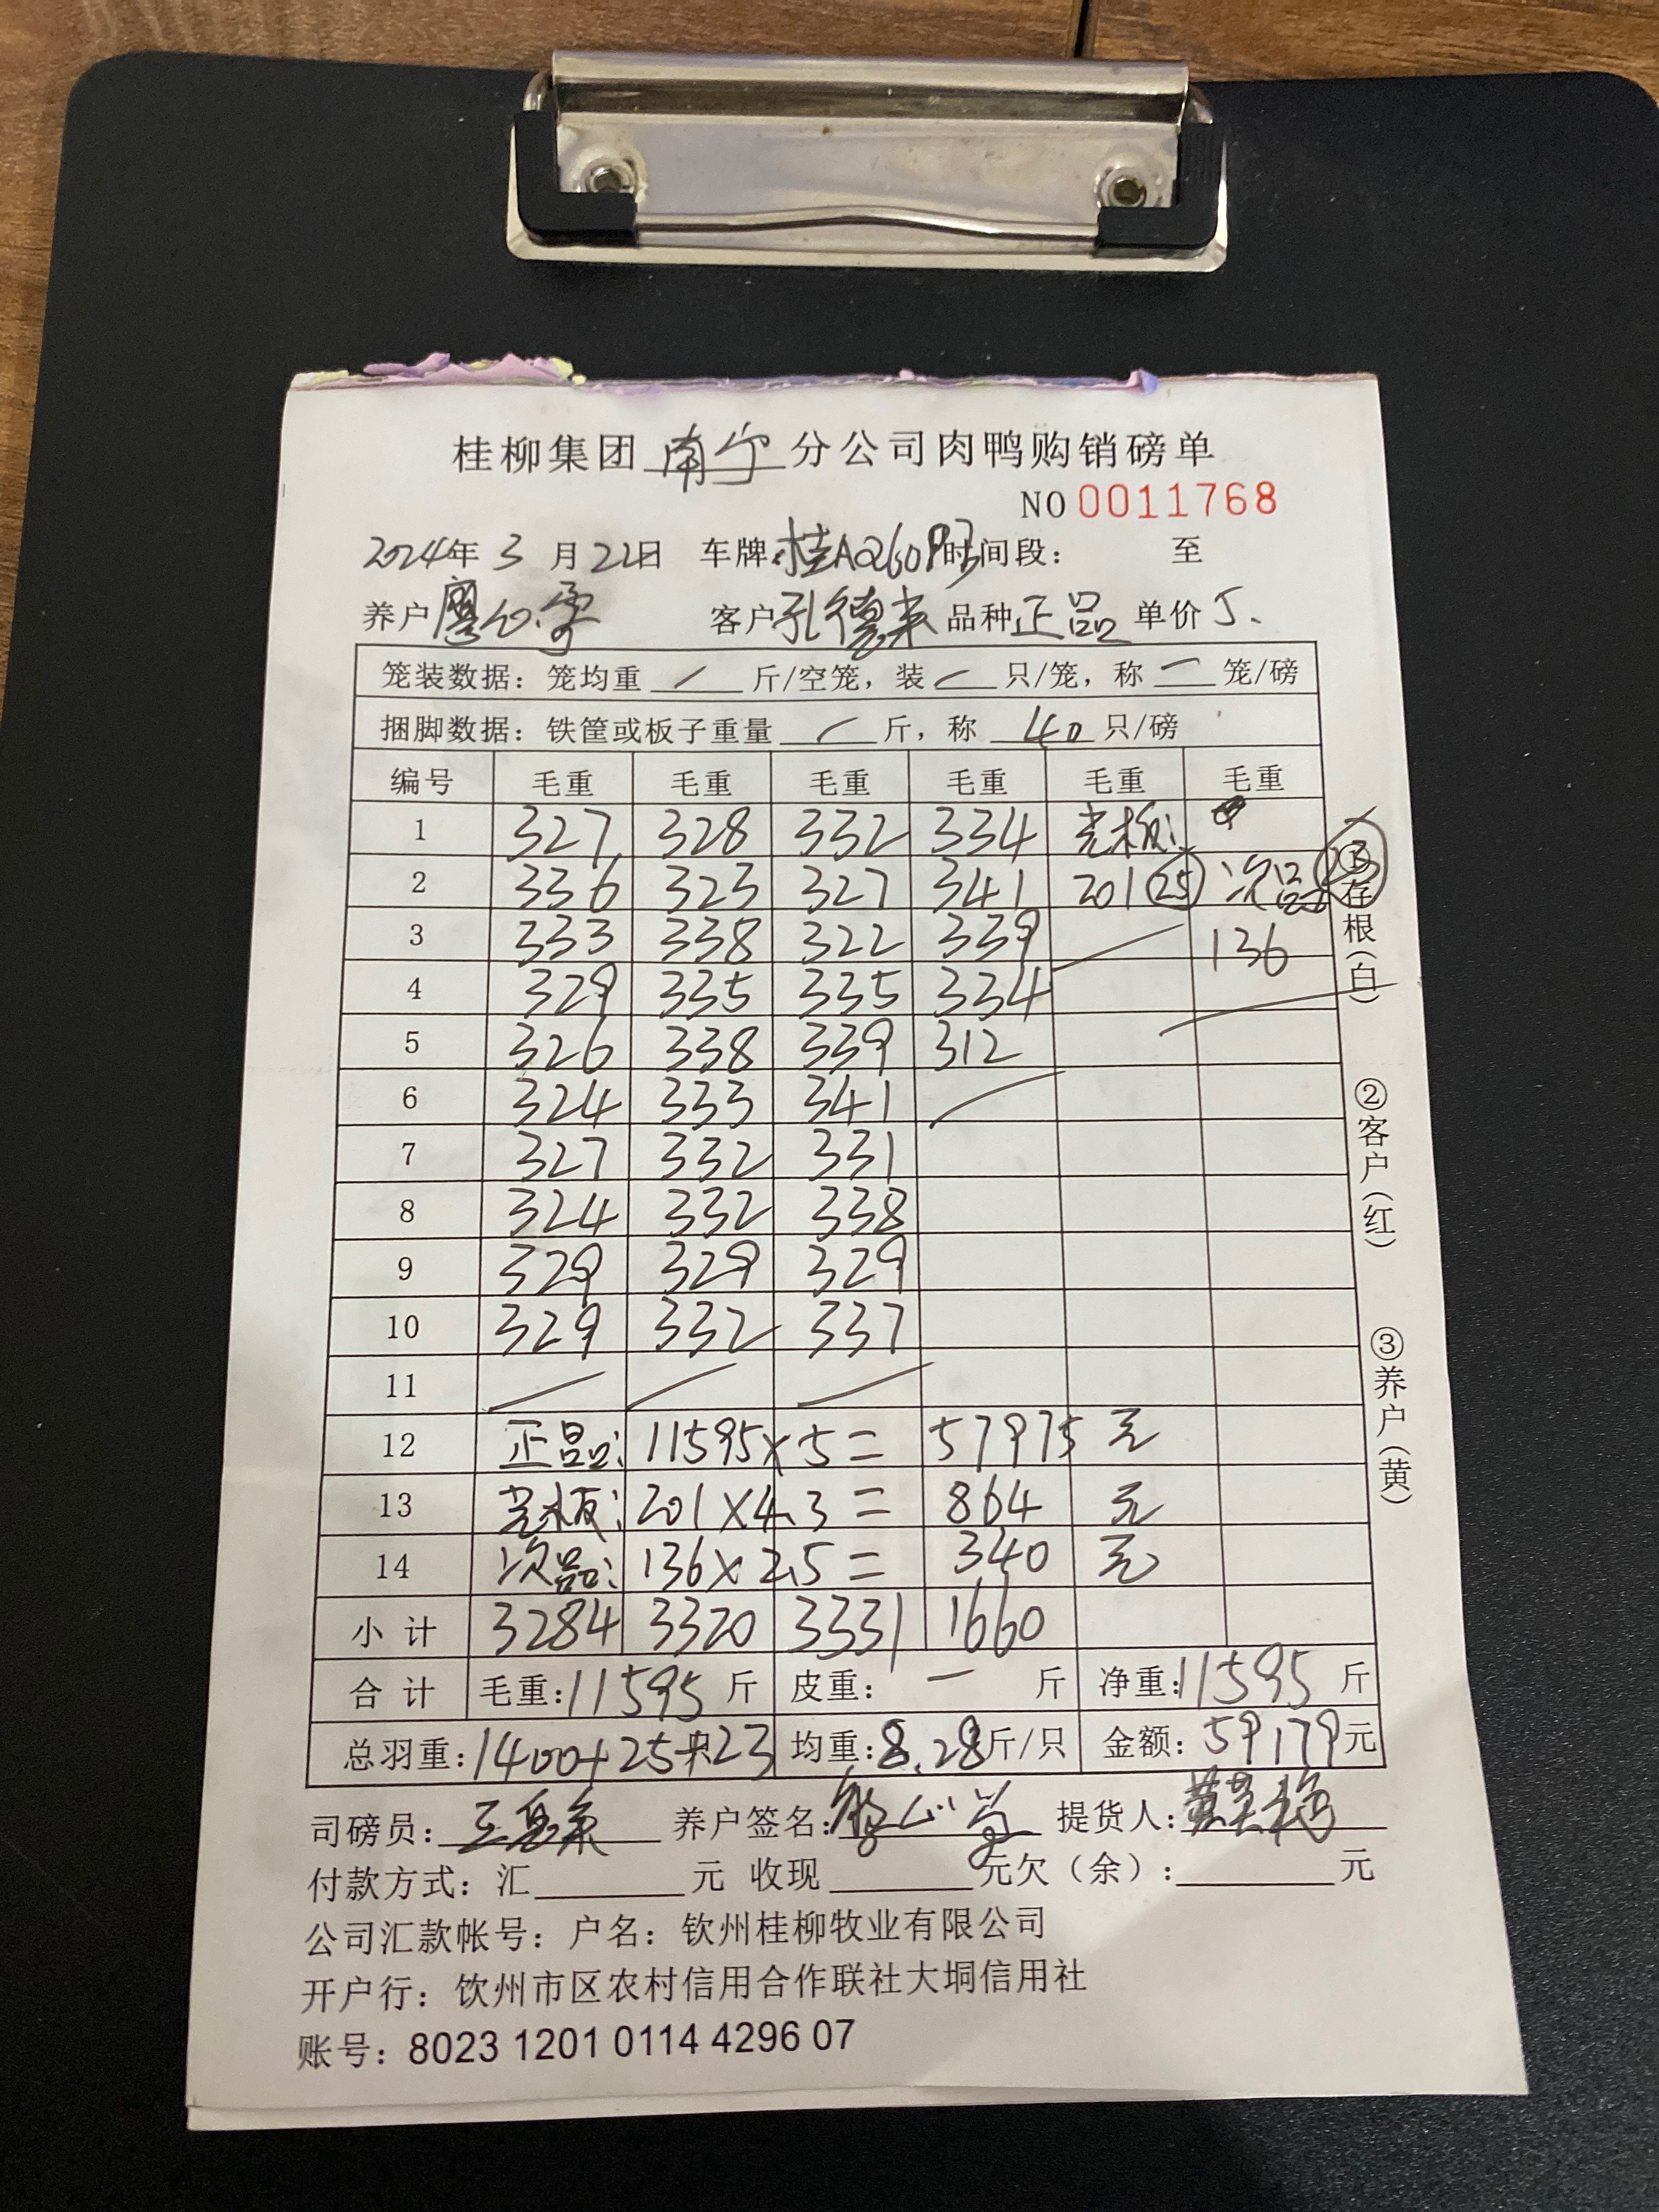 桂柳集团 南宁 分公司肉鸭购销磅单
NO 0011768
2024年 3 月 22日 车牌: 时间段： 至
养户 客户 孔德来 品种 正品 单价 5.
笼装数据：笼均重 / 斤/空笼，装 / 只/笼，称 一 笼/磅
捆脚数据：铁筐或板子重量 / 斤，称 40 只/磅
编号 毛重 毛重 毛重 毛重 毛重 毛重
1 327 328 332 334 光板:
2 336 323 327 341 201 25 次品 23
3 333 338 322 339 136
4 329 335 335 334
5 326 338 339 312
6 324 333 341
7 327 332 331
8 324 332 338
9 329 329 329
10 329 332 337
11
12 正品: 11595×5= 57975 元
13 光板: 201×4.3= 864 元
14 次品: 136×2.5= 340 元
小计 3284 3320 3331 1660
合计 毛重:11595 斤 皮重： 一 斤 净重:11595 斤
总羽重:1400+25+23 均重:8.28斤/只 金额：59179元
司磅员： 养户签名: 提货人:
付款方式：汇 元 收现 元欠（余）: 元
公司汇款帐号：户名：钦州桂柳牧业有限公司
开户行：饮州市区农村信用合作联社大垌信用社
账号：8023 1201 0114 4296 07
①存根（白）
②客户（红）
③养户（黄）